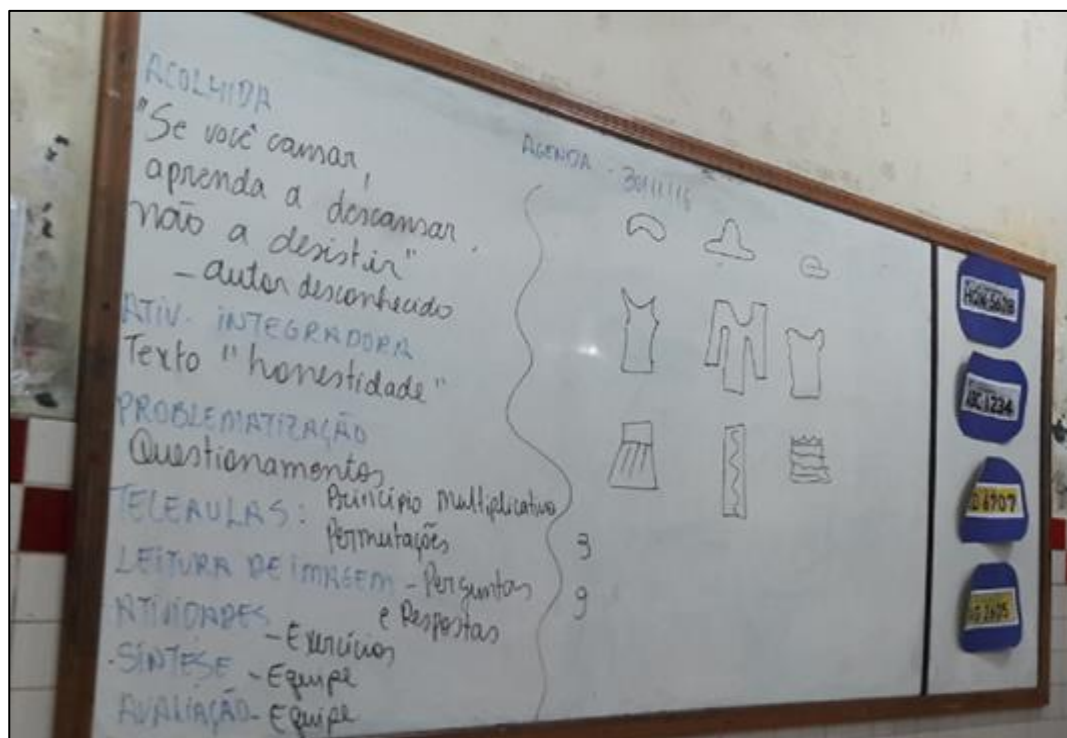 ACOLHIDA
"Se você cansar,
aprenda a descansar,
não a desistir"
- autor desconhecido
ATIV. INTEGRADORA
Texto "honestidade"
PROBLEMATIZAÇÃO
Questionamentos
TELEAULAS: Princípio Multiplicativo
Permutações
LEITURA DE IMAGEM - Perguntas
e Respostas
ATIVIDADES
- Exercícios
SÍNTESE - Equipe
AVALIAÇÃO - Equipe
AGENDA - 30/11/16
3
9
ABC 1234
6707
2605